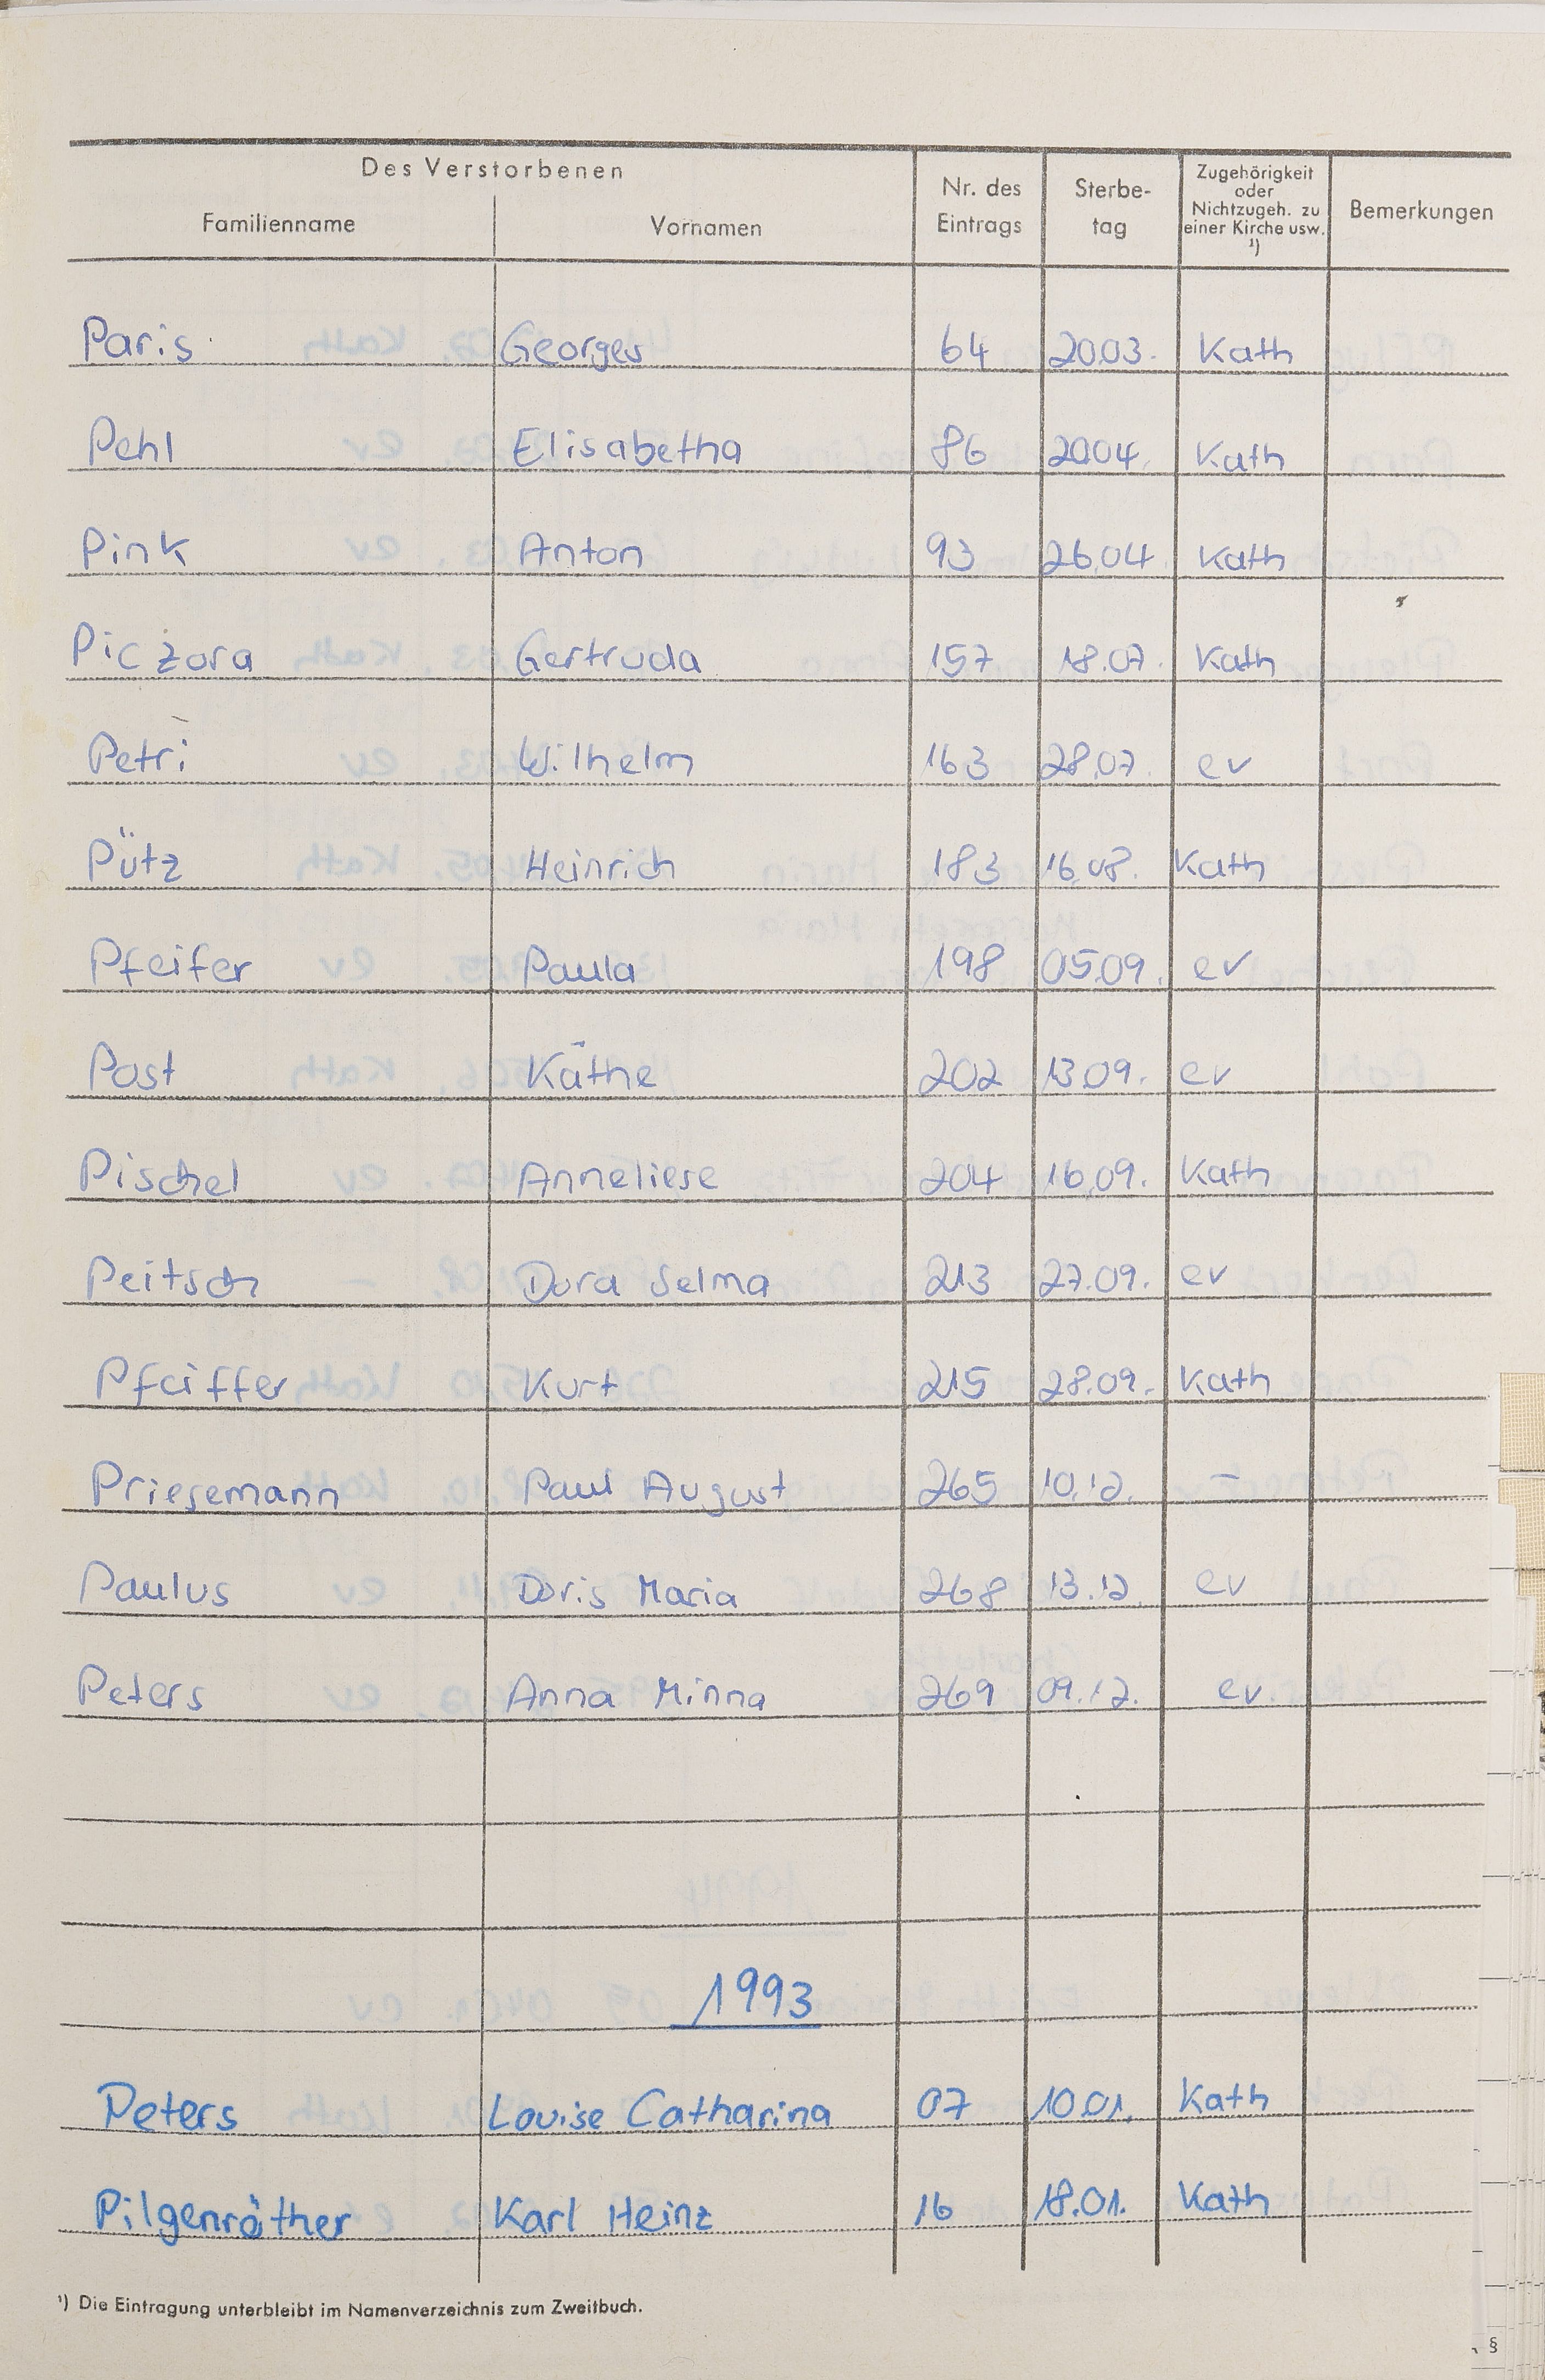 Des Verstorbenen
Familienname Vornamen Nr. des Eintrags Sterbe- tag Zugehörigkeit oder Nichtzugeh. zu einer Kirche usw. ¹) Bemerkungen
Paris Georges 64 20.03. Kath
Pehl Elisabetha 86 20.04. Kath
Pink Anton 93 26.04 Kath
Piczora Gertruda 157 18.07. Kath
Petri Wilhelm 163 28.07. ev
Pütz Heinrich 183 16.08. Kath
Pfeifer Paula 198 05.09. ev
Post Käthe 202 13.09. ev
Pischel Anneliese 204 16.09. Kath
Peitsch Dora Selma 213 27.09. ev
Pfeiffer Kurt 215 28.09. Kath
Priesemann Paul August 265 10.12. —
Paulus Doris Maria 268 13.12. ev
Peters Anna Minna 269 09.12. ev
1993
Peters Louise Catharina 07 10.01. Kath
Pilgenräther Karl Heinz 16 18.01. Kath
¹) Die Eintragung unterbleibt im Namenverzeichnis zum Zweitbuch.
§